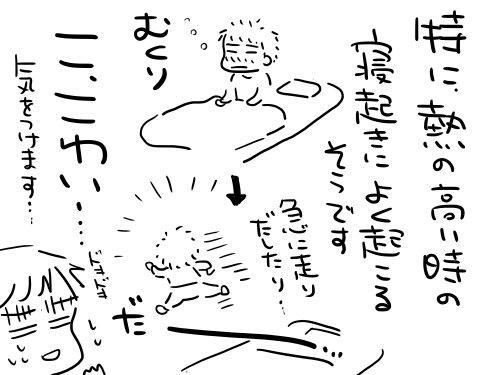 特に熱の高い時の
寝起きによく起こる
そうです
むくり
急に走り
だしたり…
だっ
こ、こわい……
ドキドキ
気をつけます…